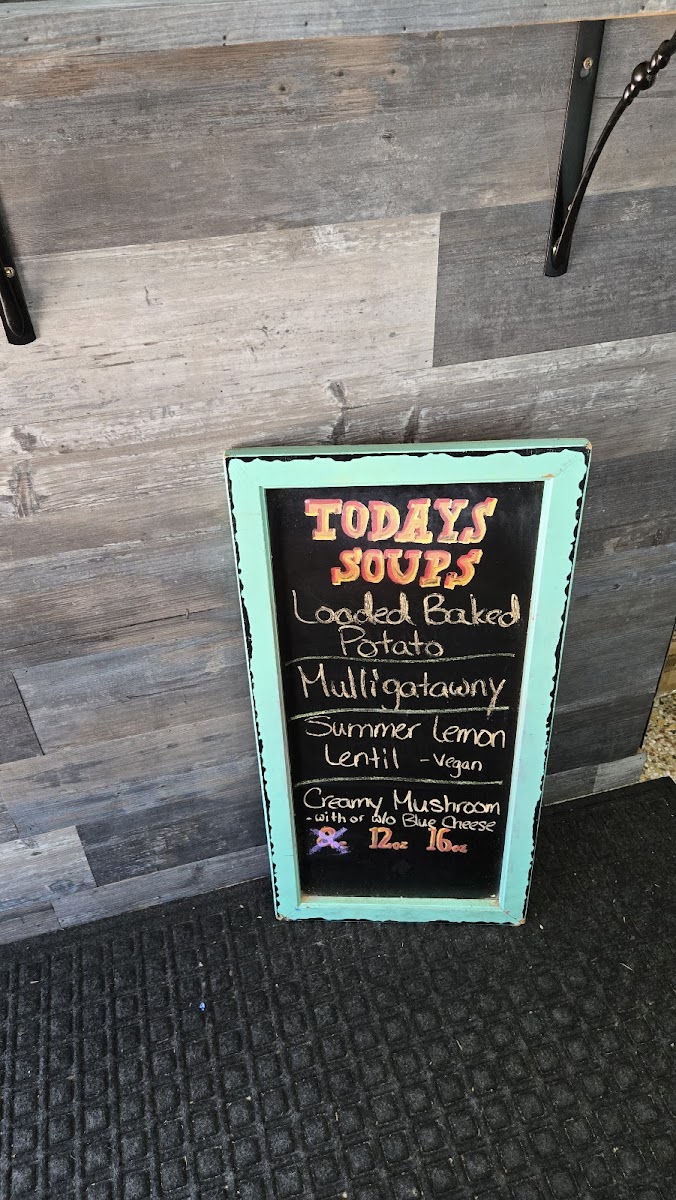 TODAYS
SOUPS
Loaded Baked
Potato
Mulligatawny
Summer Lemon
Lentil - Vegan
Creamy Mushroom
- with or w/o Blue Cheese
8oz 12oz 16oz